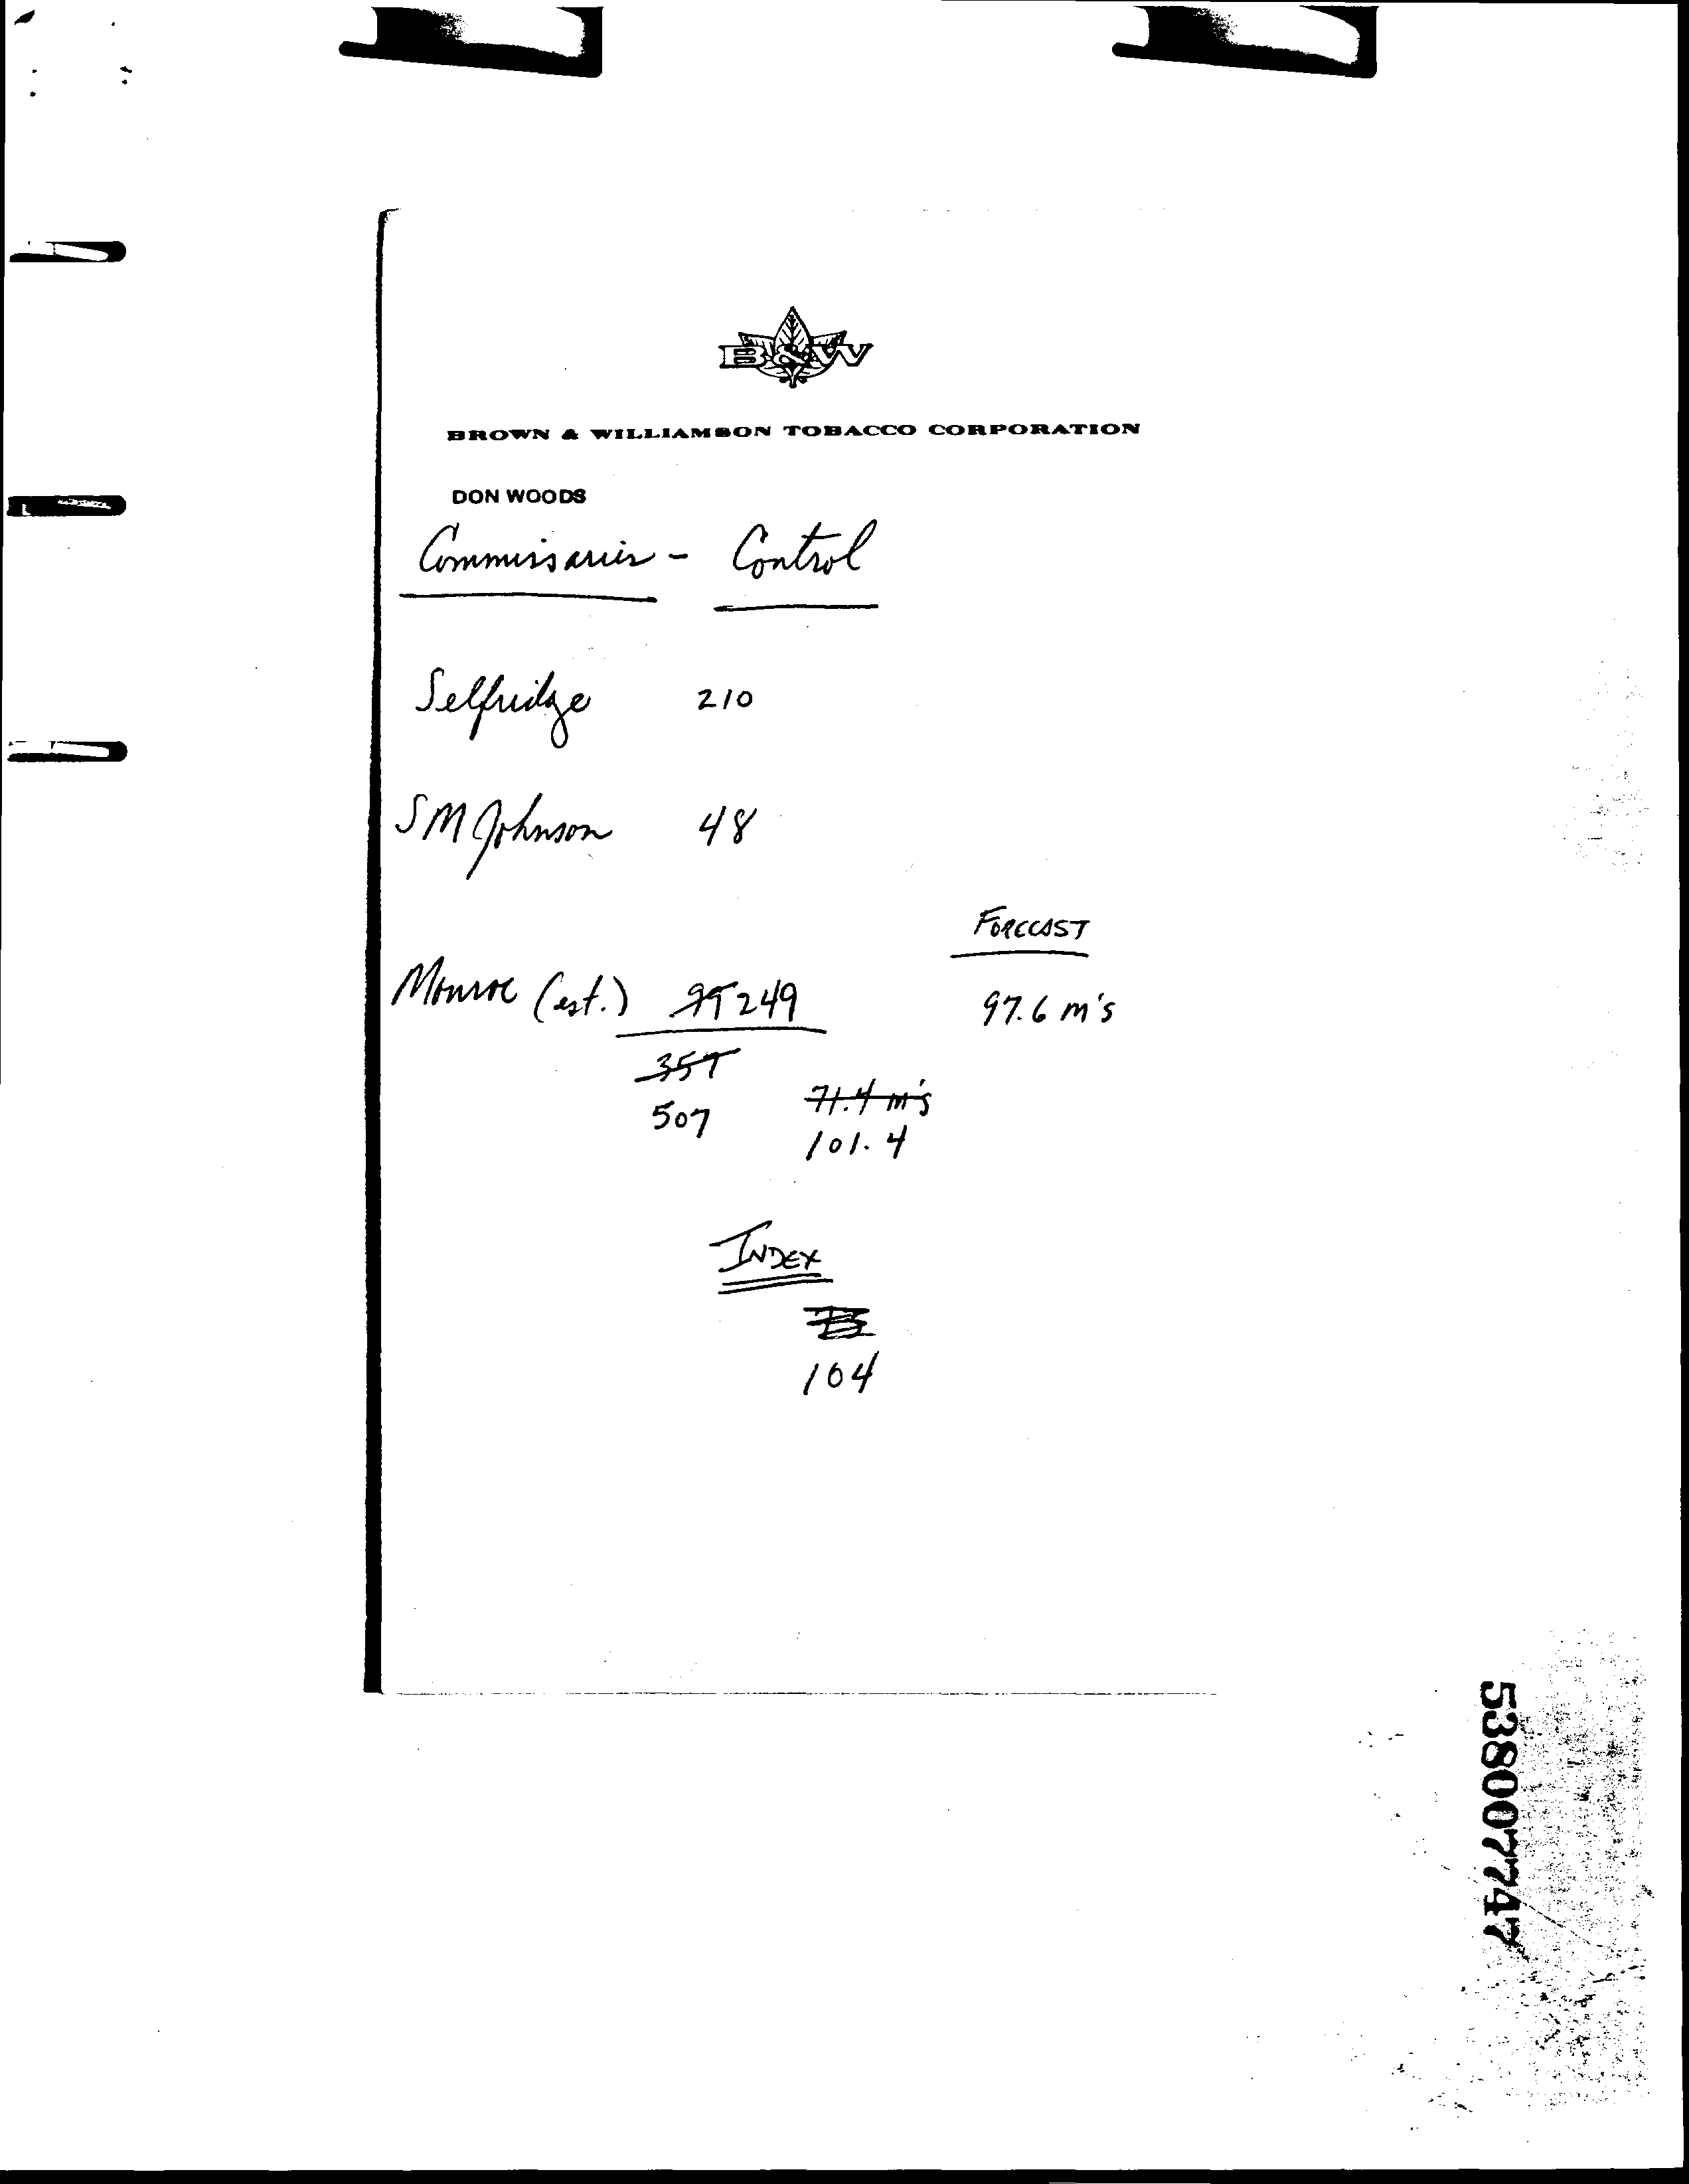 B&W
BROWN & WILLIAMSON TOBACCO CORPORATION
DON WOODS
Commissaries - Control
Selfridge 210
SM Johnson 48
FORECAST
Monroe (est.) 249 97.6 m's
357
71.4 m's
507
101.4
INDEX
104
538007747